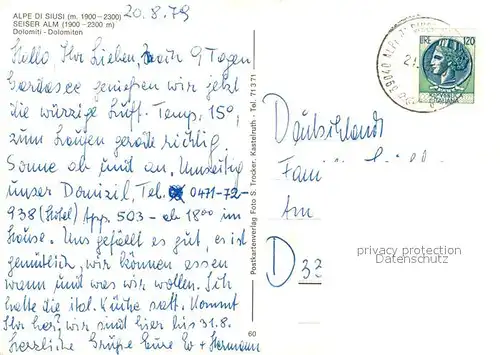 ALPE DI SIUSI (m. 1900-2300)
SEISER ALM (1900-2300 m)
Dolomiti - Dolomiten
20.8.79
Hallo Ihr Lieben, nach 9 Tagen
Gardasee genießen wir jetzt
die würzige Luft. Temp. 15°,
zum Laufen gerade richtig.
Sonne ab und an. Umseitig
unser Domizil, Tel. 0471-72-
938 (Hotel) App. 503 - ab 18⁰⁰ im
Hause. Uns gefällt es gut, es ist
gemütlich, wir können essen
wann und was wir wollen. Ich
hatte die ital. Küche satt. Kommt
Ihr her? wir sind hier bis 31.8.
Herzliche Grüße Eure + Hermann
Postkartenverlag Foto S. Trocker, Kastelruth - Tel. 71371
60
LIRE 120
39040 ALPE DI
Deutschland
Fam
Am
D 33
privacy protection
Datenschutz